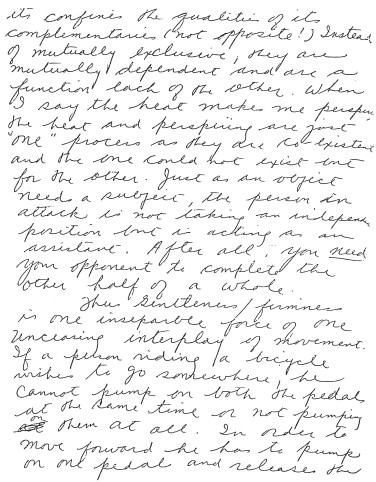 its confines the qualities of its
complementaries (not opposite!) Instead
of mutually exclusive, they are
mutually dependent and are a
function each of the other. When
I say the heat makes me perspire
the heat and perspiring are just
"one" process as they are co-existent
and the one could not exist but
for the other. Just as an object
need a subject, the person in
attack is not taking an independen
position but is acting as an
assistant. After all, you need
your opponent to complete the
other half of a whole.
Thus Gentleness/firmness
is one inseparable force of one
unceasing interplay of movement.
If a person riding a bicycle
wishes to go somewhere, he
cannot pump on both the pedals
at the same time or not pumping
on them at all. In order to
move forward he has to pump
on one pedal and release the